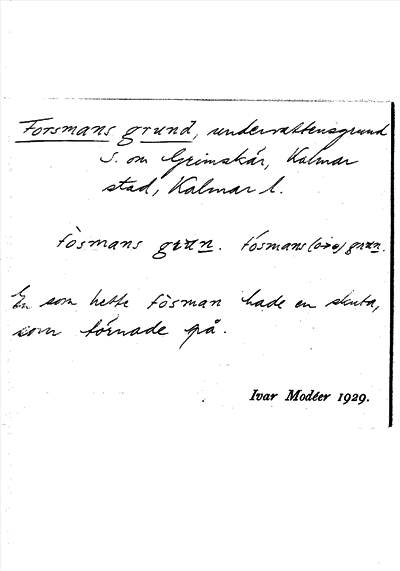 Forsmans grund, undervattensgrund
S. om Grimskär, Kalmar
stad, Kalmar l.
fòsmans grun. fósmans (o→o) grun.
En som hette fòsman hade en skuta,
som törnade på.
Ivar Modéer 1929.